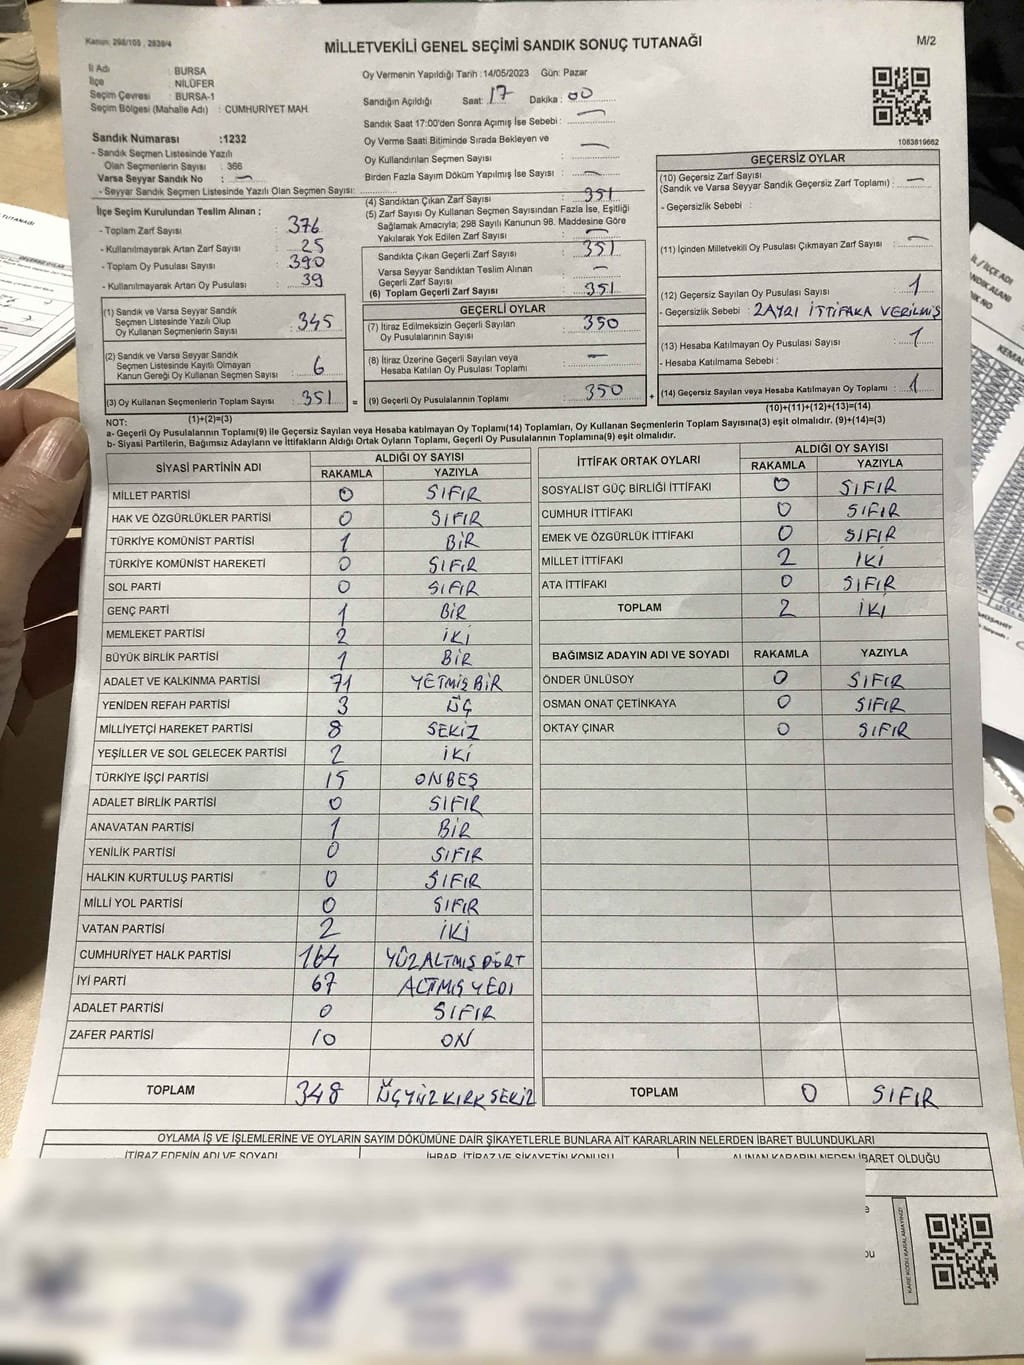 Kanun: 298/105 , 2839/4
MİLLETVEKİLİ GENEL SEÇİMİ SANDIK SONUÇ TUTANAĞI
M/2
İl Adı : BURSA
İlçe : NİLÜFER
Seçim Çevresi : BURSA-1
Seçim Bölgesi (Mahalle Adı) : CUMHURİYET MAH.
Sandık Numarası :1232
- Sandık Seçmen Listesinde Yazılı
Olan Seçmenlerin Sayısı : 366
Varsa Seyyar Sandık No : —
- Seyyar Sandık Seçmen Listesinde Yazılı Olan Seçmen Sayısı:
Oy Vermenin Yapıldığı Tarih :14/05/2023 Gün: Pazar
Sandığın Açıldığı Saat: 17 Dakika : 00
Sandık Saat 17:00'den Sonra Açımış İse Sebebi : —
Oy Verme Saati Bitiminde Sırada Bekleyen ve
Oy Kullandırılan Seçmen Sayısı : —
Birden Fazla Sayım Döküm Yapılmış İse Sayısı : —
1083819662
İlçe Seçim Kurulundan Teslim Alınan ;
- Toplam Zarf Sayısı : 376
- Kullanılmayarak Artan Zarf Sayısı : 25
- Toplam Oy Pusulası Sayısı : 390
- Kullanılmayarak Artan Oy Pusulası : 39
(1) Sandık ve Varsa Seyyar Sandık
Seçmen Listesinde Yazılı Olup
Oy Kullanan Seçmenlerin Sayısı : 345
(2) Sandık ve Varsa Seyyar Sandık
Seçmen Listesinde Kayıtlı Olmayan
Kanun Gereği Oy Kullanan Seçmen Sayısı : 6
(3) Oy Kullanan Seçmenlerin Toplam Sayısı : 351 =
(4) Sandıktan Çıkan Zarf Sayısı : 351
(5) Zarf Sayısı Oy Kullanan Seçmen Sayısından Fazla İse, Eşitliği
Sağlamak Amacıyla; 298 Sayılı Kanunun 98. Maddesine Göre
Yakılarak Yok Edilen Zarf Sayısı : —
Sandıkta Çıkan Geçerli Zarf Sayısı : 351
Varsa Seyyar Sandıktan Teslim Alınan
Geçerli Zarf Sayısı : —
(6) Toplam Geçerli Zarf Sayısı : 351
GEÇERLİ OYLAR
(7) İtiraz Edilmeksizin Geçerli Sayılan
Oy Pusulalarının Sayısı : 350
(8) İtiraz Üzerine Geçerli Sayılan veya
Hesaba Katılan Oy Pusulası Toplamı : —
(9) Geçerli Oy Pusulalarının Toplamı : 350 +
GEÇERSİZ OYLAR
(10) Geçersiz Zarf Sayısı
(Sandık ve Varsa Seyyar Sandık Geçersiz Zarf Toplamı) : —
- Geçersizlik Sebebi :
(11) İçinden Milletvekili Oy Pusulası Çıkmayan Zarf Sayısı : —
(12) Geçersiz Sayılan Oy Pusulası Sayısı : 1
- Geçersizlik Sebebi : 2 AYRI İTTİFAKA VERİLMİŞ
(13) Hesaba Katılmayan Oy Pusulası Sayısı : 1
- Hesaba Katılmama Sebebi :
(14) Geçersiz Sayılan veya Hesaba Katılmayan Oy Toplamı : 1
NOT: (1)+(2)=(3)
(10)+(11)+(12)+(13)=(14)
a- Geçerli Oy Pusulalarının Toplamı(9) ile Geçersiz Sayılan veya Hesaba katılmayan Oy Toplamı(14) Toplamları, Oy Kullanan Seçmenlerin Toplam Sayısına(3) eşit olmalıdır. (9)+(14)=(3)
b- Siyasi Partilerin, Bağımsız Adayların ve İttifakların Aldığı Ortak Oyların Toplamı, Geçerli Oy Pusulalarının Toplamına(9) eşit olmalıdır.
SİYASİ PARTİNİN ADI ALDIĞI OY SAYISI
RAKAMLA YAZIYLA
MİLLET PARTİSİ 0 SIFIR
HAK VE ÖZGÜRLÜKLER PARTİSİ 0 SIFIR
TÜRKİYE KOMÜNİST PARTİSİ 1 BİR
TÜRKİYE KOMÜNİST HAREKETİ 0 SIFIR
SOL PARTİ 0 SIFIR
GENÇ PARTİ 1 BİR
MEMLEKET PARTİSİ 2 İKİ
BÜYÜK BİRLİK PARTİSİ 1 BİR
ADALET VE KALKINMA PARTİSİ 71 YETMİŞ BİR
YENİDEN REFAH PARTİSİ 3 ÜÇ
MİLLİYETÇİ HAREKET PARTİSİ 8 SEKİZ
YEŞİLLER VE SOL GELECEK PARTİSİ 2 İKİ
TÜRKİYE İŞÇİ PARTİSİ 15 ONBEŞ
ADALET BİRLİK PARTİSİ 0 SIFIR
ANAVATAN PARTİSİ 1 BİR
YENİLİK PARTİSİ 0 SIFIR
HALKIN KURTULUŞ PARTİSİ 0 SIFIR
MİLLİ YOL PARTİSİ 0 SIFIR
VATAN PARTİSİ 2 İKİ
CUMHURİYET HALK PARTİSİ 164 YÜZALTMIŞ DÖRT
İYİ PARTİ 67 ALTMIŞ YEDİ
ADALET PARTİSİ 0 SIFIR
ZAFER PARTİSİ 10 ON
TOPLAM 348 ÜÇYÜZ KIRK SEKİZ
İTTİFAK ORTAK OYLARI ALDIĞI OY SAYISI
RAKAMLA YAZIYLA
SOSYALİST GÜÇ BİRLİĞİ İTTİFAKI 0 SIFIR
CUMHUR İTTİFAKI 0 SIFIR
EMEK VE ÖZGÜRLÜK İTTİFAKI 0 SIFIR
MİLLET İTTİFAKI 2 İKİ
ATA İTTİFAKI 0 SIFIR
TOPLAM 2 İKİ
BAĞIMSIZ ADAYIN ADI VE SOYADI RAKAMLA YAZIYLA
ÖNDER ÜNLÜSOY 0 SIFIR
OSMAN ONAT ÇETİNKAYA 0 SIFIR
OKTAY ÇINAR 0 SIFIR
TOPLAM 0 SIFIR
OYLAMA İŞ VE İŞLEMLERİNE VE OYLARIN SAYIM DÖKÜMÜNE DAİR ŞİKAYETLERLE BUNLARA AİT KARARLARIN NELERDEN İBARET BULUNDUKLARI
İTİRAZ EDENİN ADI VE SOYADI İHBAR, İTİRAZ VE ŞİKAYETİN KONUSU ALINAN KARARIN NEDEN İBARET OLDUĞU
KARE KODU KARALAMAYINIZ!